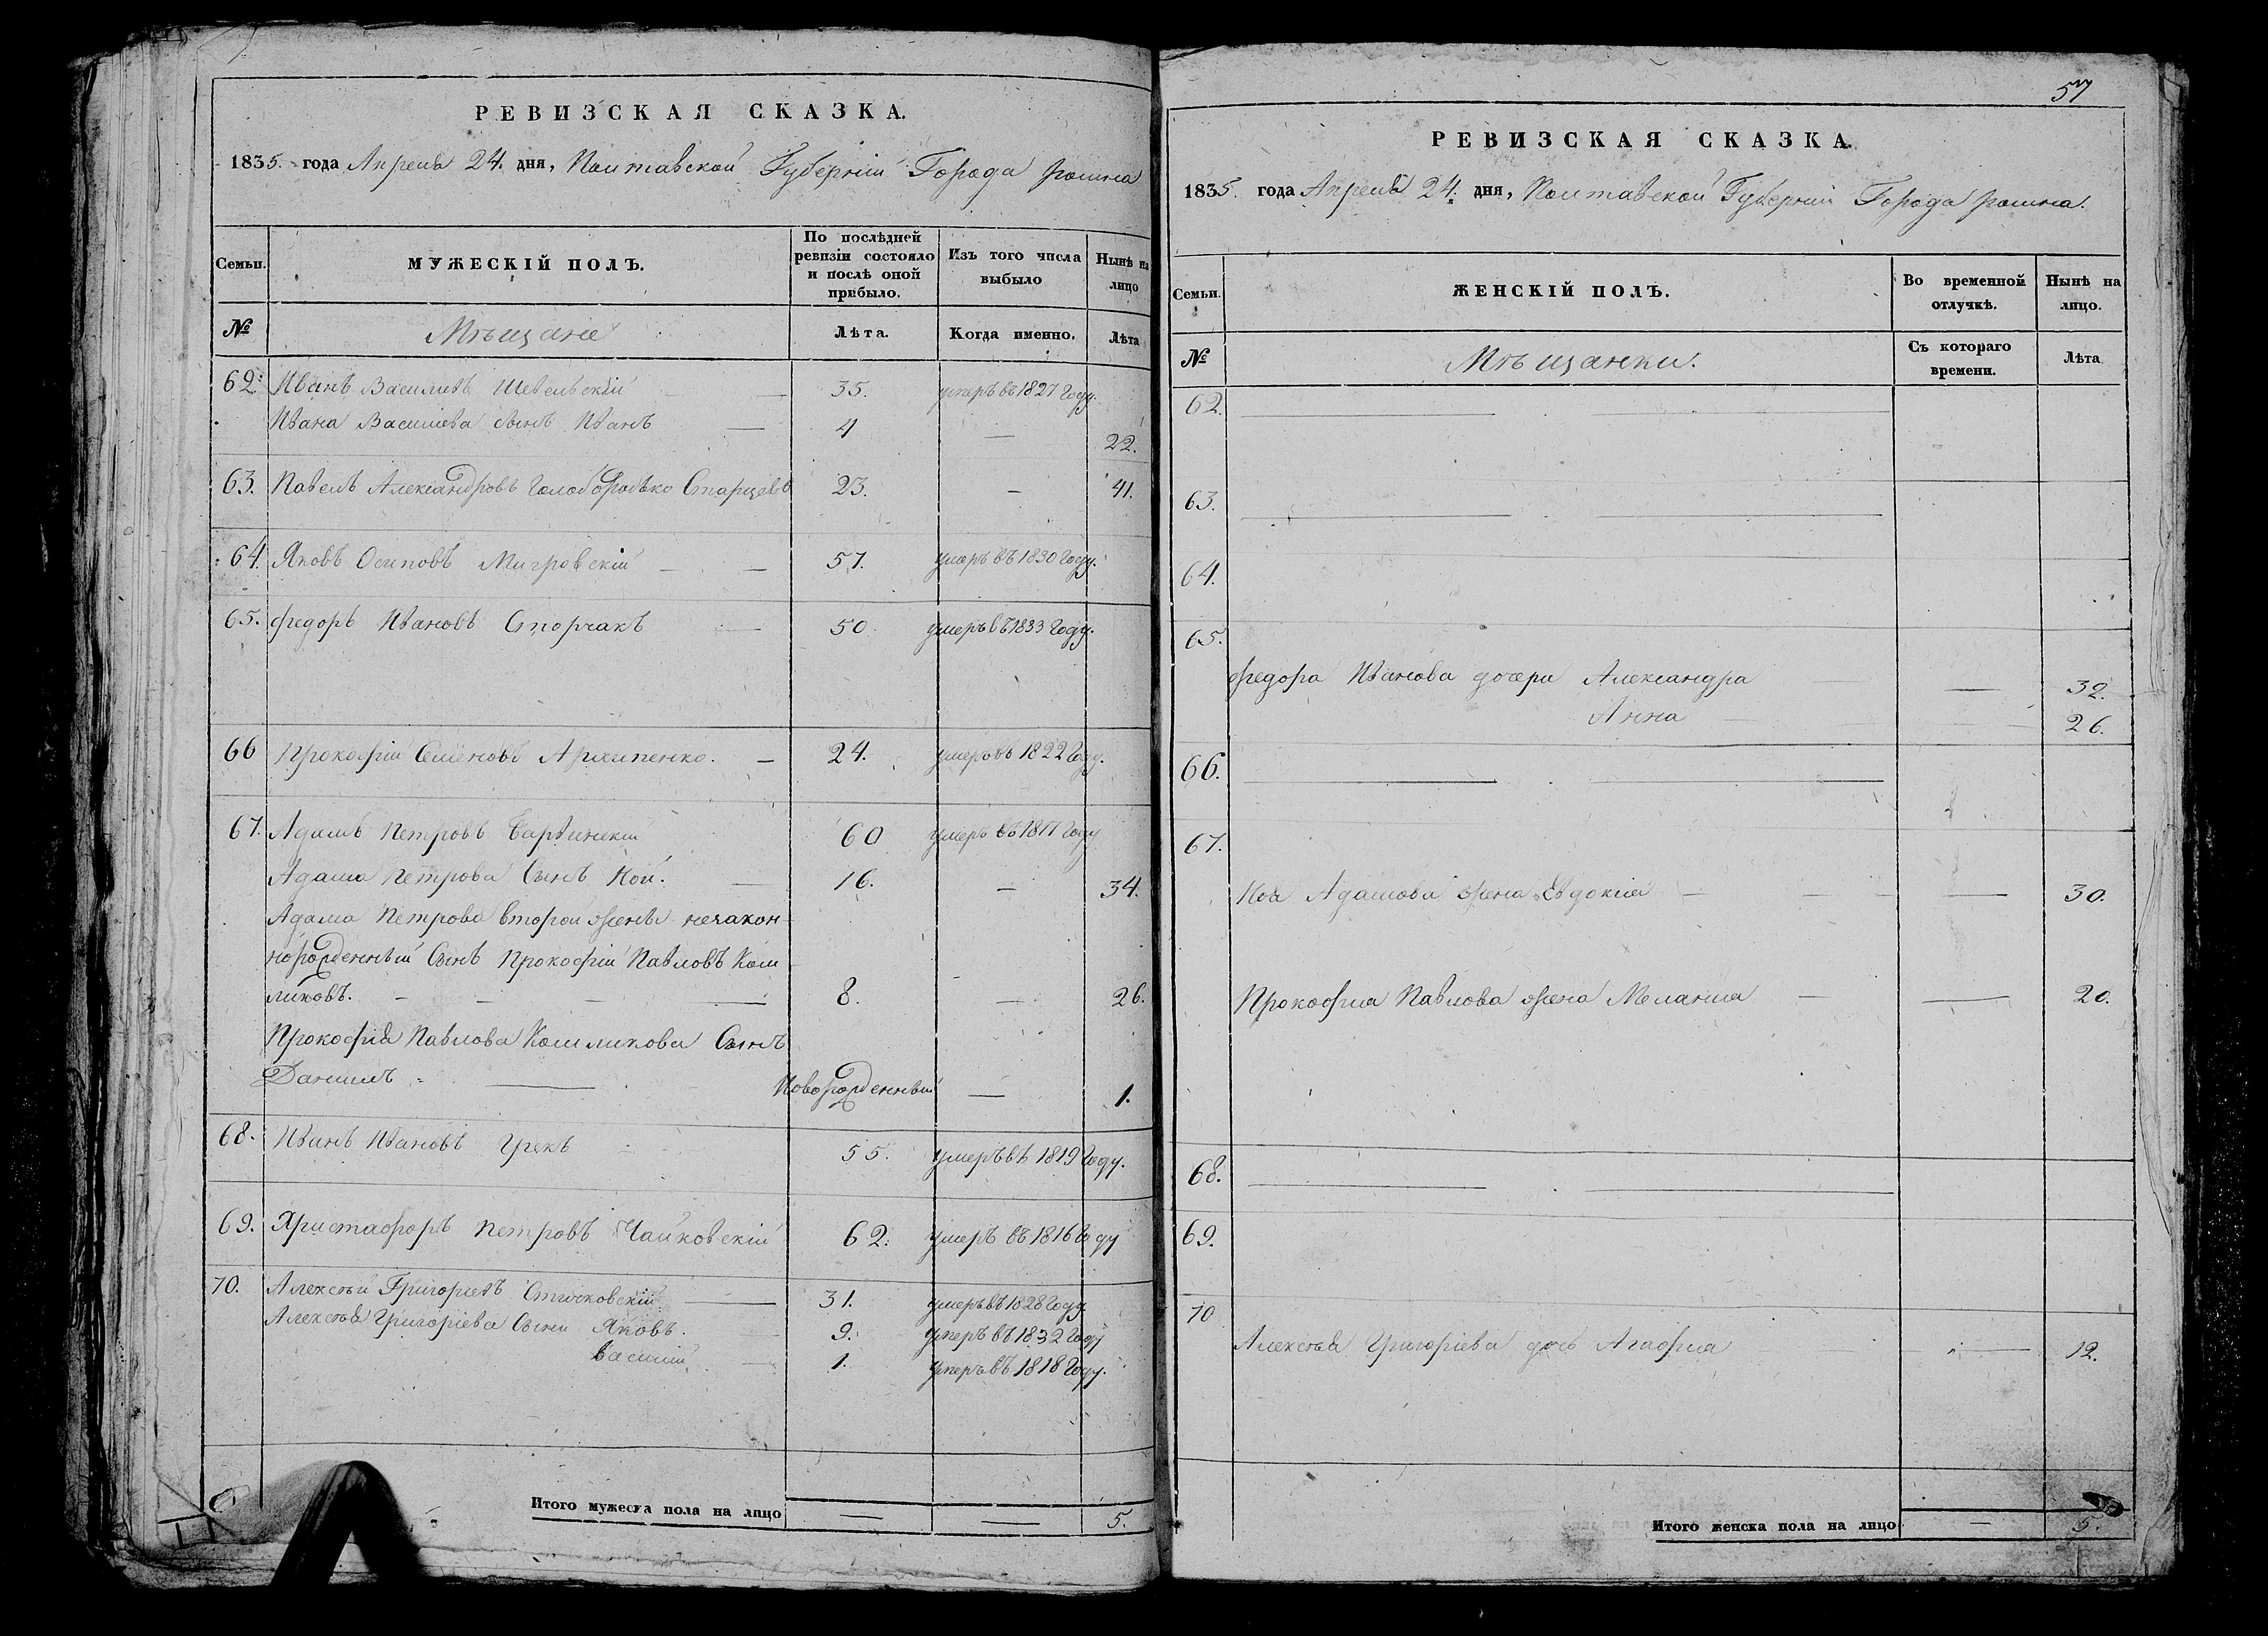 РЕВИЗСКАЯ СКАЗКА.
1835. года Апреля 24. дня, Полтавской Губерніи Города Ромна
Семьи.
МУЖЕСКІЙ ПОЛЪ.
По послѣдней ревизіи состояло и послѣ оной прибыло.
Изъ того числа выбыло
Нынѣ на лицо
№
Мѣщане
Лѣта.
Когда именно.
Лѣта
62. Иванъ Василіевъ 35. умеръ въ 1827 Году.
Ивана Василіева сынъ Иванъ — 4 — 22.
63. Павелъ Александровъ Голобородько Старцевъ 23. — 41.
64. Яковъ Осиповъ — — 57. умеръ въ 1830 Году.
65. Федоръ Ивановъ Сторчакъ — 50. умеръ въ 1833 Году.
66 Прокофій Семеновъ Архипенко. — 24. умеръ въ 1822 Году.
67. Адамъ Петровъ 60 умеръ въ Году
Адама Петрова Сынъ Ной. — 16. — 34.
Адама Петрова второй жены незакон-
норожденный Сынъ Прокофій Павловъ Кош
ликовъ. — — — — 8. — 26.
Прокофія Павлова Кошликова Сынъ
Даніилъ — Новорожденный — 1.
68. Иванъ Ивановъ Грекъ 55. умеръ въ 1819 Году.
69. Христофоръ Петровъ Чайковскій 62. умеръ въ 1816 Году
70. Алексѣй Григоріевъ — 31. умеръ въ 1828 Году
Алексѣя Григоріева Сыни Яковъ. 9. умеръ въ 1832 Году
Василій — 1. умеръ въ 1818 Году.
Итого мужеска пола на лицо — — 5.
57
РЕВИЗСКАЯ СКАЗКА.
1835. года Апреля 24. дня, Полтавской Губерніи Города Ромна.
Семьи.
ЖЕНСКІЙ ПОЛЪ.
Во временной отлучкѣ.
Нынѣ на лицо.
№
Мѣщанки.
Съ котораго времени.
Лѣта
62.
63.
64.
65.
Федора Иванова дочери Александра — 32.
Анна — 26.
66.
67.
Ноя Адамова жена Евдокія — — — 30.
Прокофія Павлова жена Меланія — — 20.
68.
69.
70
Алексѣя Григоріева дочь Агафія — 12.
Итого женска пола на лицо — 5.